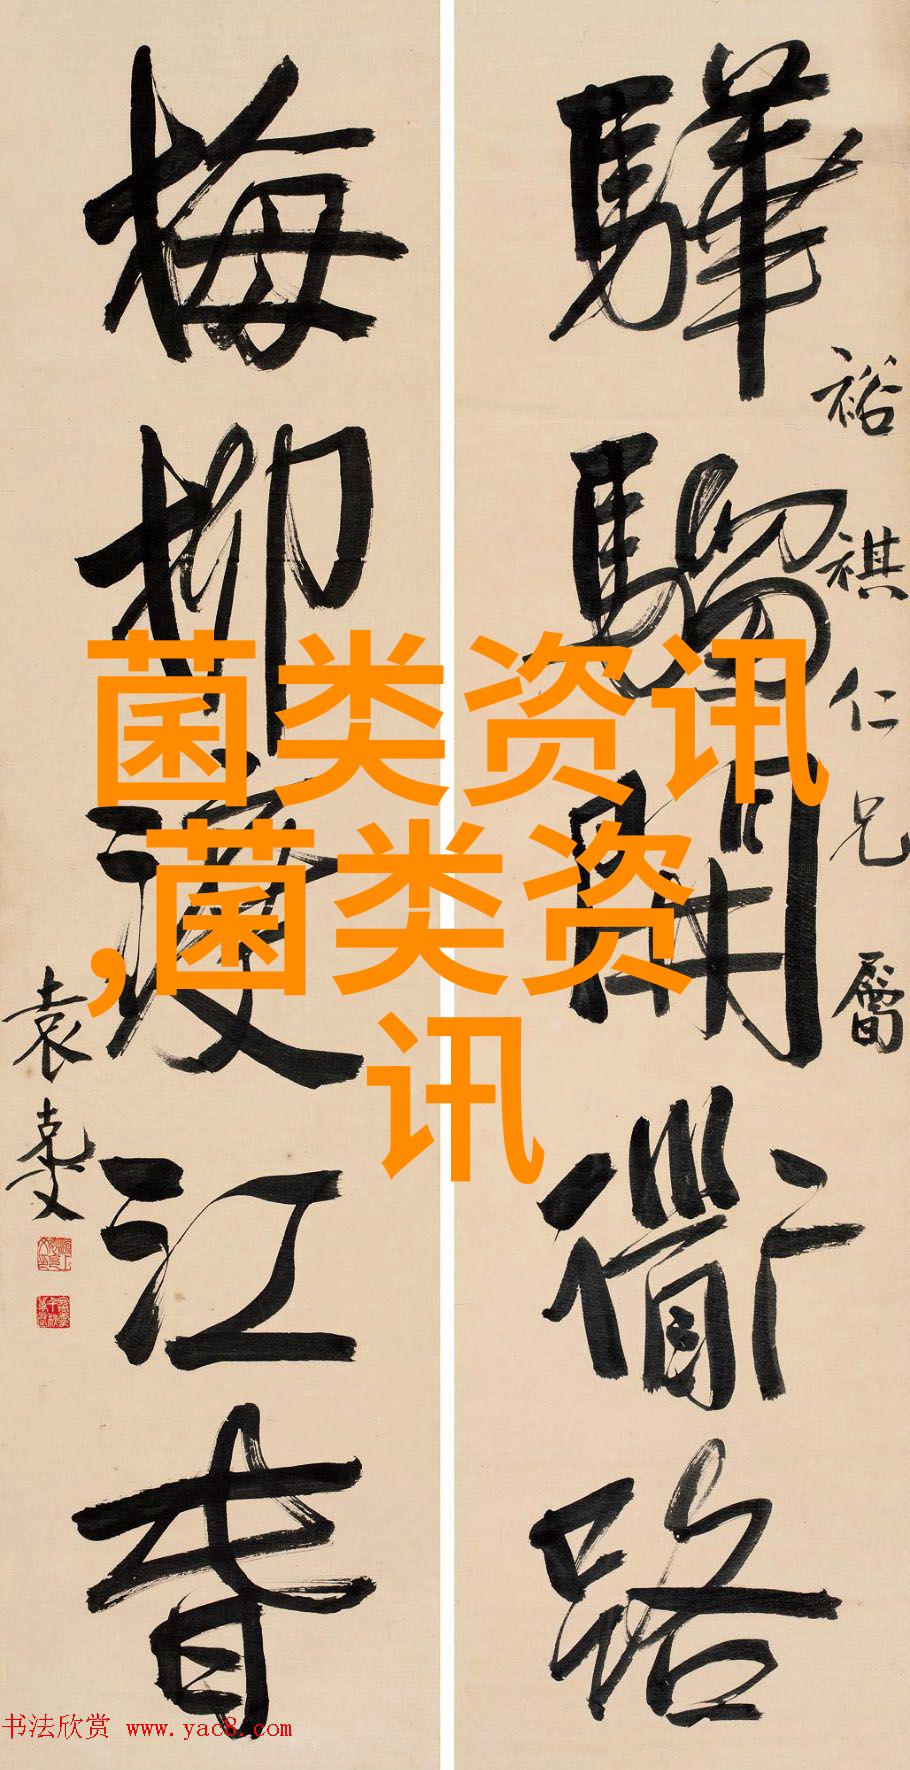 驊騮開衜路
裕祺仁兄屬
梅柳渡江春
袁克文
菌类资讯
,菌类资
讯
书法欣赏 www.yac8.com